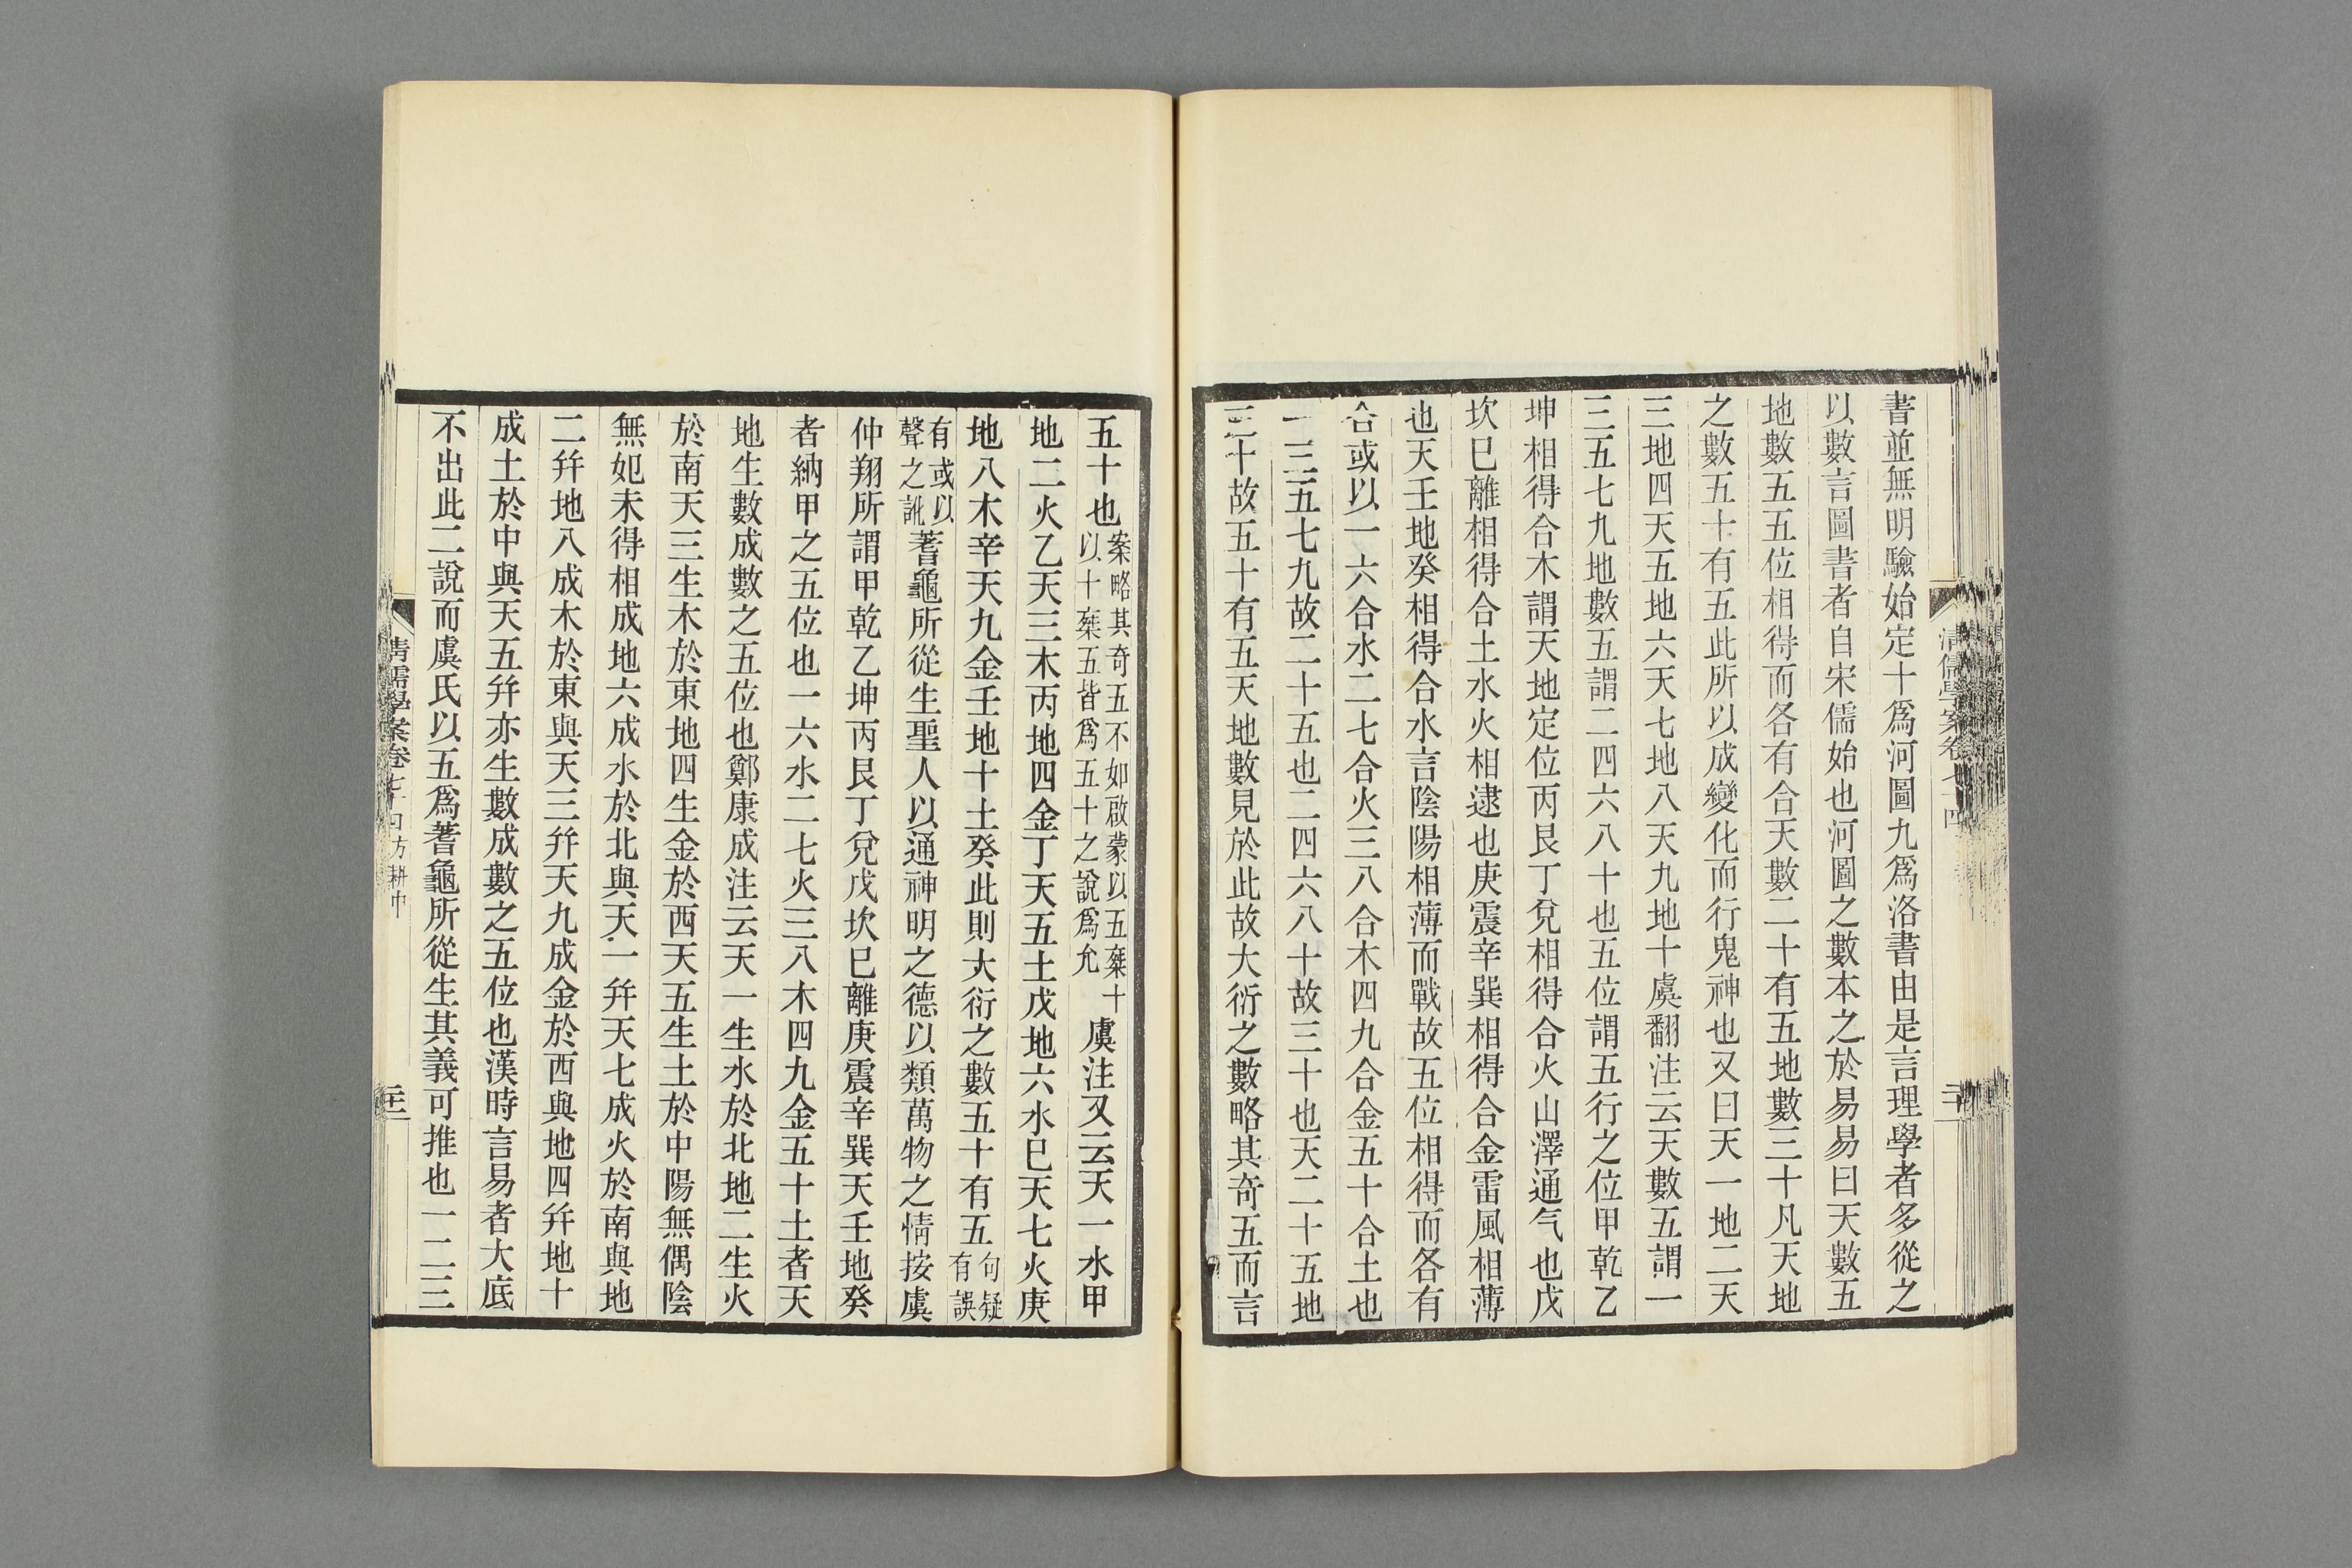 書並無明驗始定十爲河圖九爲洛書由是言理學者多從之
以數言圖書者自宋儒始也河圖之數本之於易易曰天數五
地數五五位相得而各有合天數二十有五地數三十凡天地
之數五十有五此所以成變化而行鬼神也又曰天一地二天
三地四天五地六天七地八天九地十虞翻注云天數五謂一
三五七九地數五謂二四六八十也五位謂五行之位甲乾乙
坤相得合木謂天地定位丙艮丁兌相得合火山澤通气也戊
坎巳離相得合土水火相逮也庚震辛巽相得合金雷風相薄
也天壬地癸相得合水言陰陽相薄而戰故五位相得而各有
合或以一六合水二七合火三八合木四九合金五十合土也
一三五七九故二十五也二四六八十故三十也天二十五地
三十故五十有五天地數見於此故大衍之數略其奇五而言
五十也案略其奇五不如啟蒙以五椉十以十椉五皆爲五十之說爲允虞注又云天一水甲
地二火乙天三木丙地四金丁天五土戊地六水巳天七火庚
地八木辛天九金壬地十土癸此則大衍之數五十有五句疑有誤
有或以聲之訛蓍龜所從生聖人以通神明之德以類萬物之情按虞
仲翔所謂甲乾乙坤丙艮丁兌戊坎巳離庚震辛巽天壬地癸
者納甲之五位也一六水二七火三八木四九金五十土者天
地生數成數之五位也鄭康成注云天一生水於北地二生火
於南天三生木於東地四生金於西天五生土於中陽無偶陰
無妃未得相成地六成水於北與天一幷天七成火於南與地
二幷地八成木於東與天三幷天九成金於西與地四幷地十
成土於中與天五幷亦生數成數之五位也漢時言易者大底
不出此二說而虞氏以五爲蓍龜所從生其義可推也一二三
清儒學案卷七十四方耕中